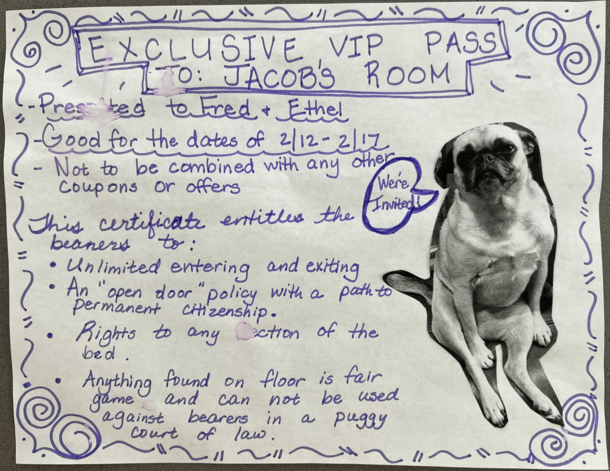 EXCLUSIVE VIP PASS
TO: JACOB'S ROOM
- Presented to Fred + Ethel
- Good for the dates of 2/12 - 2/17
- Not to be combined with any other
coupons or offers
We're
Invited!
This certificate entitles the
bearers to:
• Unlimited entering and exiting
• An "open door" policy with a path to
permanent citizenship.
• Rights to any section of the
bed.
• Anything found on floor is fair
game and can not be used
against bearers in a puggy
court of law.